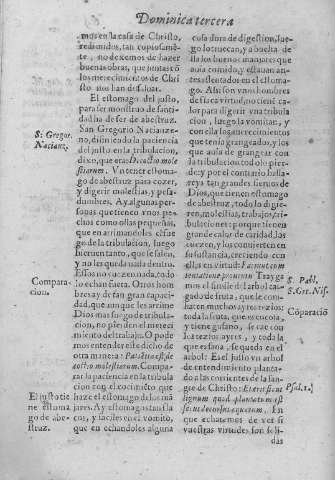 Dominica tercera
mos en la casa de Christo,
redimidos, tan copiosamẽ-
te, no dexemos de hazer
buenas obras, que juntas cõ
los merecimientos de Chri
sto nos han de saluar.
El estomago del justo,
para ser monstro de santi-
dad ha de ser de abestruz.
San Gregorio Nacianze-
no, diziẽdo la paciencia
del justo en la tribulacion,
dixo, que era: Decoctio mole
stiarum. Vn tener estoma-
go de abestruz para cozer,
y digerir molestias, y pesa-
dumbres. Ay algunas per-
sonas que tienen vnos pe-
chos como ollas pequeñas,
que en arrimandoles el fue
go de la tribulacion, luego
hieruen tanto, que se salen,
y no les queda nada dentro.
Essos no cuezen nada, todo
lo echan fuera. Otros hom-
bres ay de tan gran capaci-
dad, que aunque les arrime
Dios mas fuego de tribula-
cion, no pierden el mereci-
miento del trabajo. Pode-
mos entender este dicho de
otra manera: Patientia est de
coctio molestiarum. Compa-
rar la paciencia en la tribula
cion con el cocimiẽto que
haze el estomago de los mã
jares. Ay estomagos tan fla
cos, y faciles en el vomito,
que en echandoles alguna
cosa dura de digestion, lue-
go lo truecan, y a buelta de
ella los buenos manjares que
auia comido, y estauan an-
tes assentados en el estoma-
go. Assi son vnos hombres
de flaca virtud, no tienẽ ca-
lor para digerir vna tribula
cion, luego la vomitan, y
con ella los merecimientos
que tenia grangeados, y los
que auia de grangear con
la tribulacion todo lo pier-
de: y por el contrario halla-
reys tan grandes sieruos de
Dios, que tienen estomago
de abestruz, todo lo digie-
ren, molestias, trabajos, tri-
bulaciones: porque tienen
grande calor de caridad, los
cuezen, y los conuierten en
su sustancia, creciendo con
ellas en virtud: Facimus cum
tentatione prouentum. Traygamos
el simile del arbol car-
gado de fruta, que le comi-
hazen muchos ayres rezios:
toda la fruta, que es cocola,
y tiene gusano, se cae con
los rezios ayres, y toda la
que es sana, se queda en el
arbol: Es el justo vn arbol
de entendimiento planta-
do a las corrientes de la san-
gre de Christo: Et erit sicut
lignum quod plantatum est
secus decursus aquarum. En
que echaremos de ver si
vuestras virtudes son soli-
das
S. Gregor.
Nacianz.
Compara-
cion.
El justo tie
ne estoma
go de abe
struz.
S. Pabl.
S. Gre. Nis.
Cõparaciõ
Psal. 1.